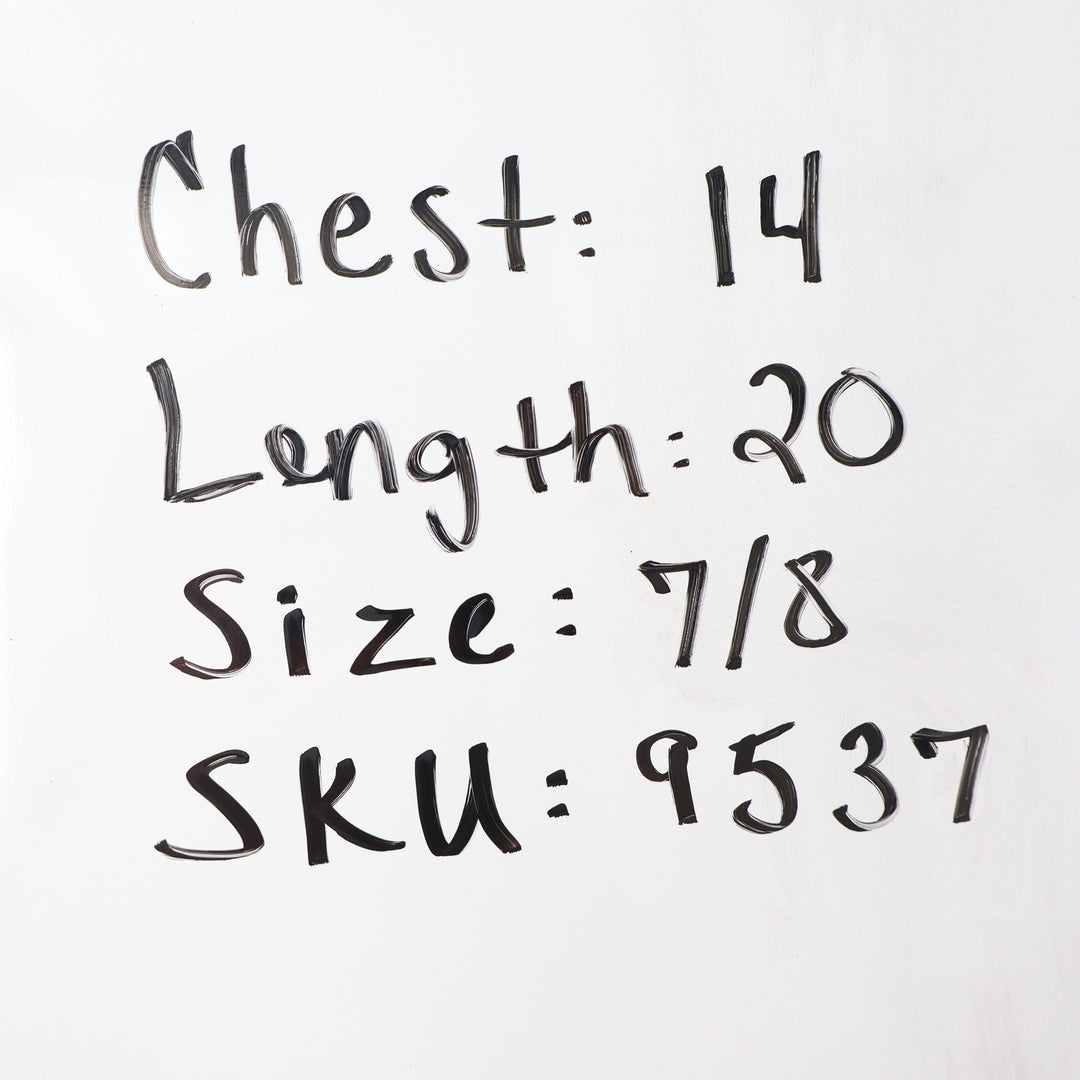 Chest: 14
Length: 20
Size: 7/8
SKU: 9537